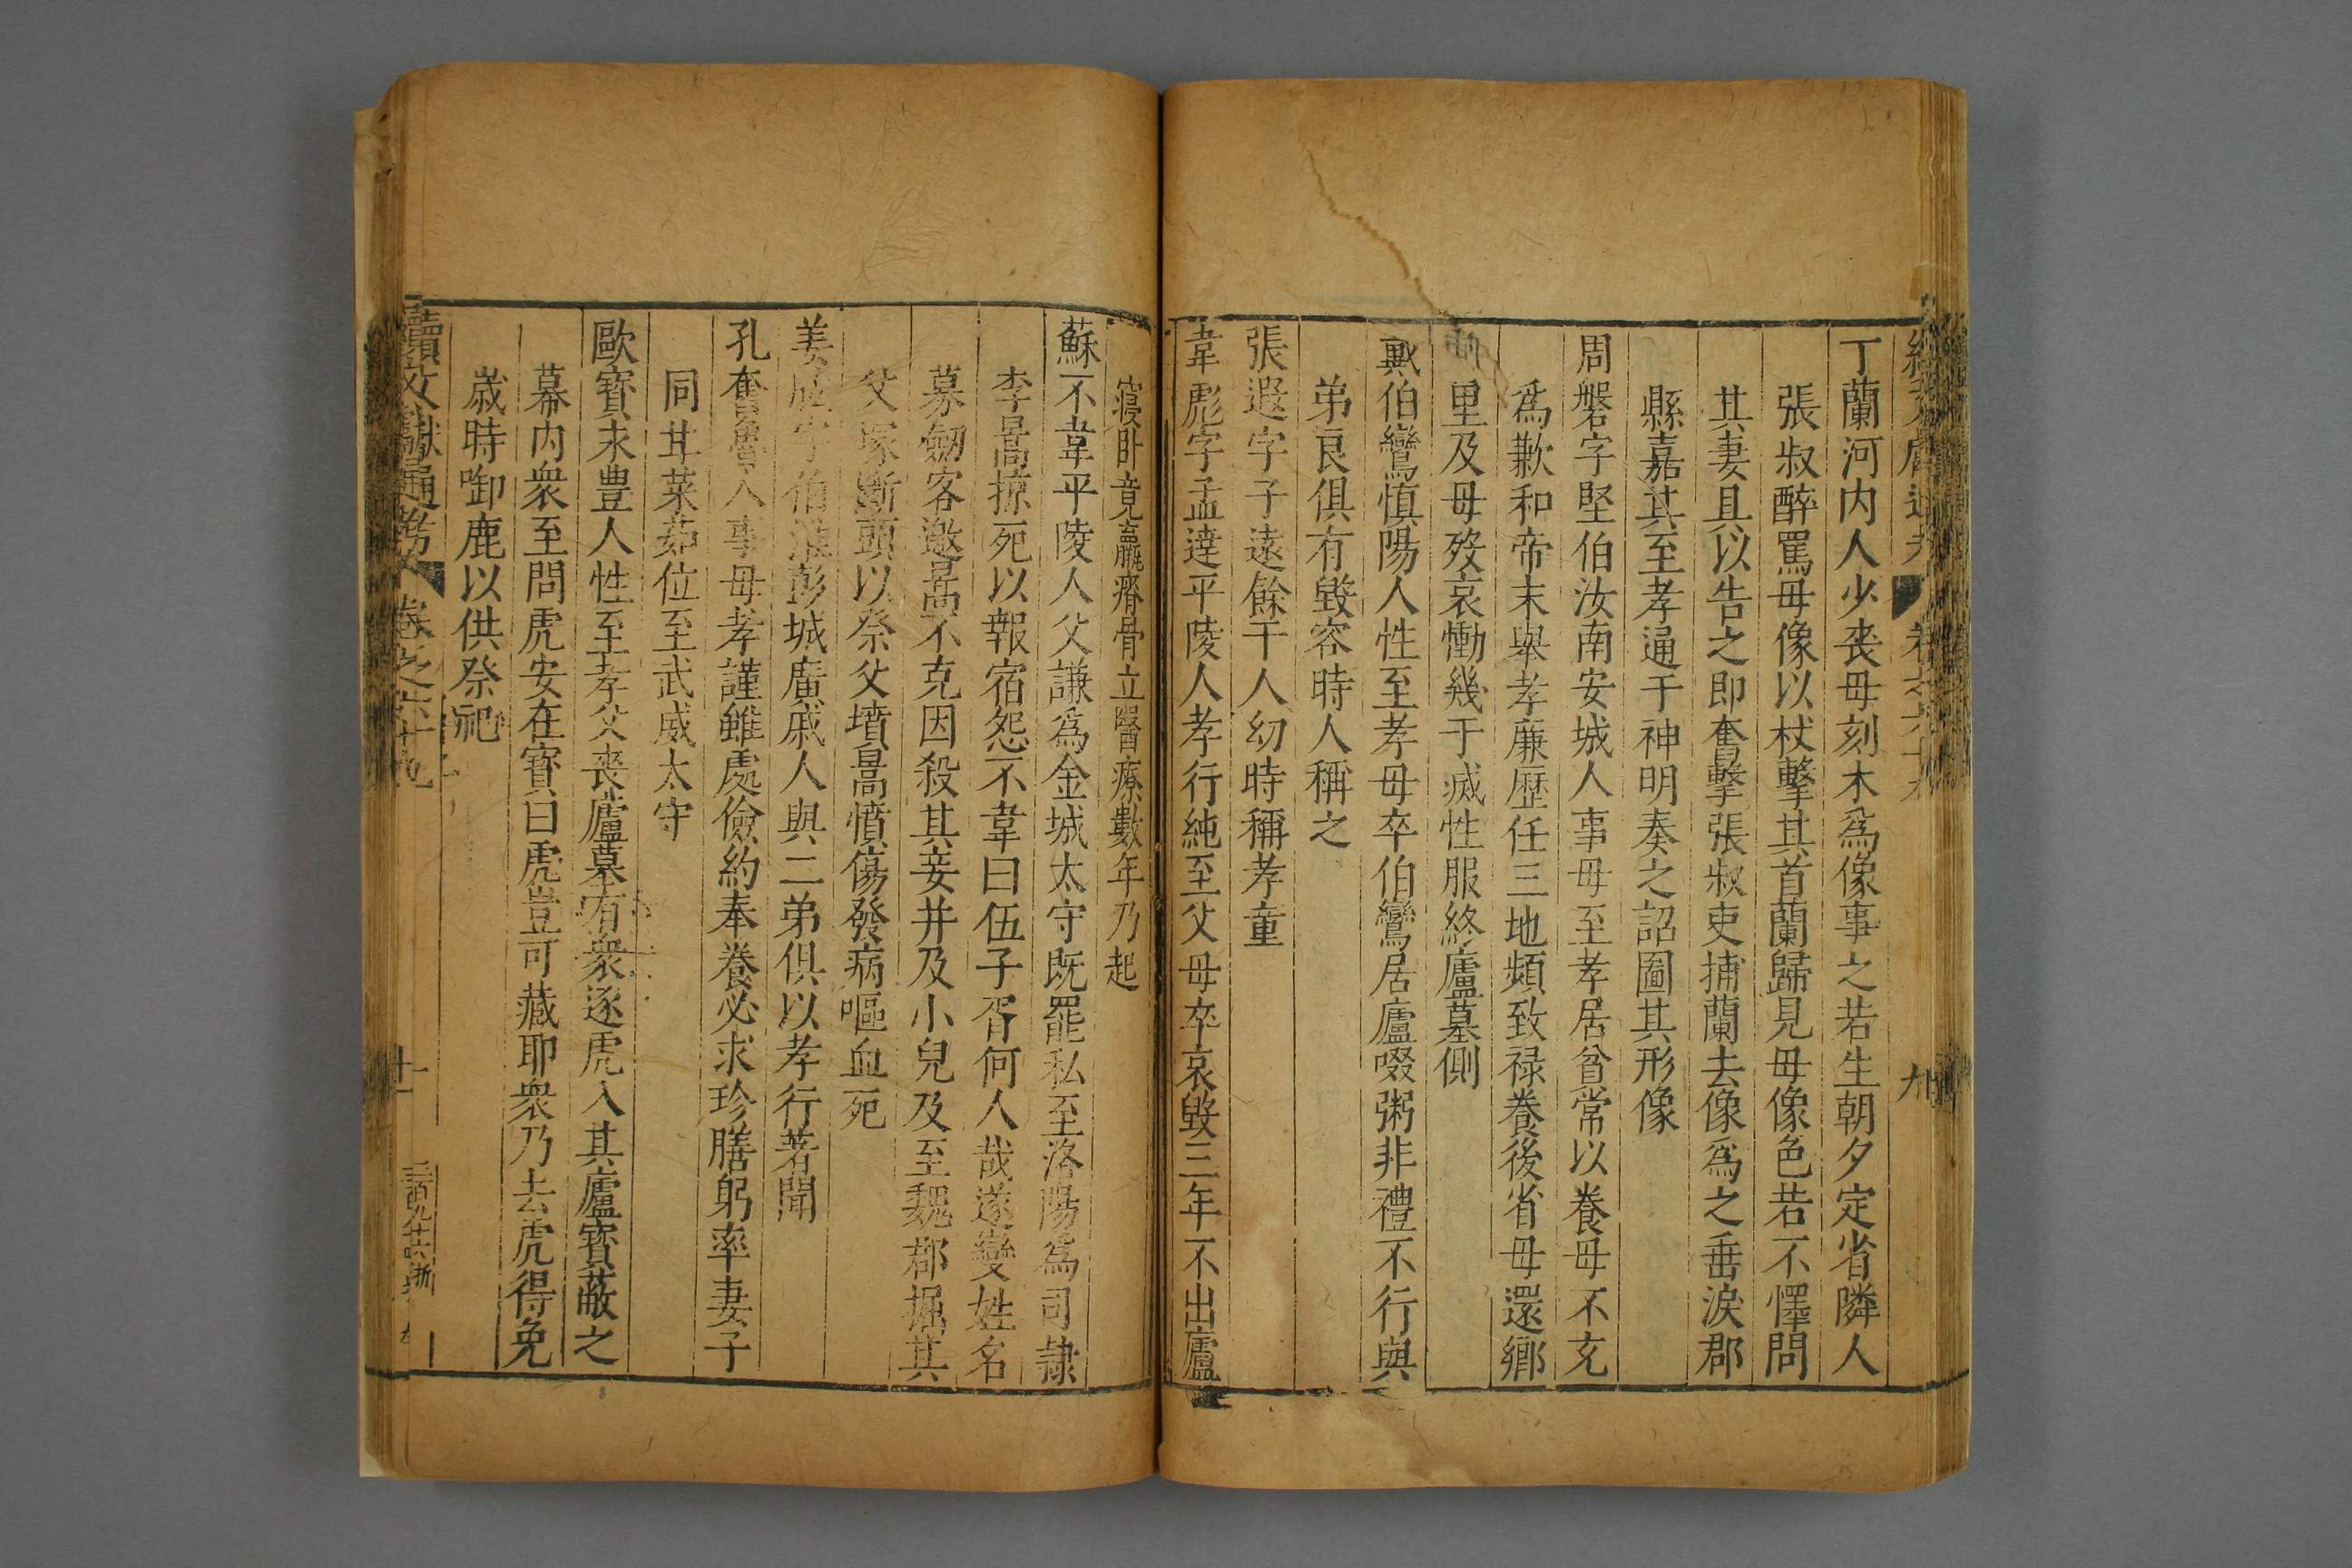 丁蘭河内人少丧母刻木爲像事之若生朝夕定省隣人
張叔醉罵毋像以杖擊其首蘭歸見毋像色若不懌問
其妻具以告之即奮擊張叔吏捕蘭去像爲之垂淚郡
縣嘉其至孝通于神明奏之詔圖其形像
周磐字堅伯汝南安城人事毋至孝居貧常以養毋不充
爲歉和帝末舉孝廉歷任三地頻致禄養後省毋還鄉
里及毋歿哀慟幾于滅性服終廬墓側
戴伯鸞慎陽人性至孝毋卒伯鸞居廬啜粥非禮不行與
弟良俱有毀容時人稱之
張遐字子遠餘干人幼時稱孝童
韋彪字孟達平陵人孝行純至父毋卒哀毀三年不出廬
寢卧竟羸瘠骨立醫療數年乃起
蘇不韋平陵人父謙為金城太守既罷私至洛陽為司隷
李暠掠死以報宿怨不韋曰伍子胥何人哉遂變姓名
募劔客邀暠不克因殺其妾并及小兒及至魏郡掘其
父塚斷頭以祭父墳暠憤傷發病嘔血死
姜肱字伯淮彭城廣戚人與二弟俱以孝行著聞
孔奮魯人事毋孝謹雖處儉約奉養必求珍膳躬率妻子
同甘菜茹位至武威太守
歐寶耒豊人性至孝父喪廬墓有衆逐虎入其廬寶蔽之
幕内衆至問虎安在寶曰虎豈可藏耶衆乃去虎得免
歳時啣鹿以供祭祀
續文獻通考 卷之六十九
十
三百九十六 浙